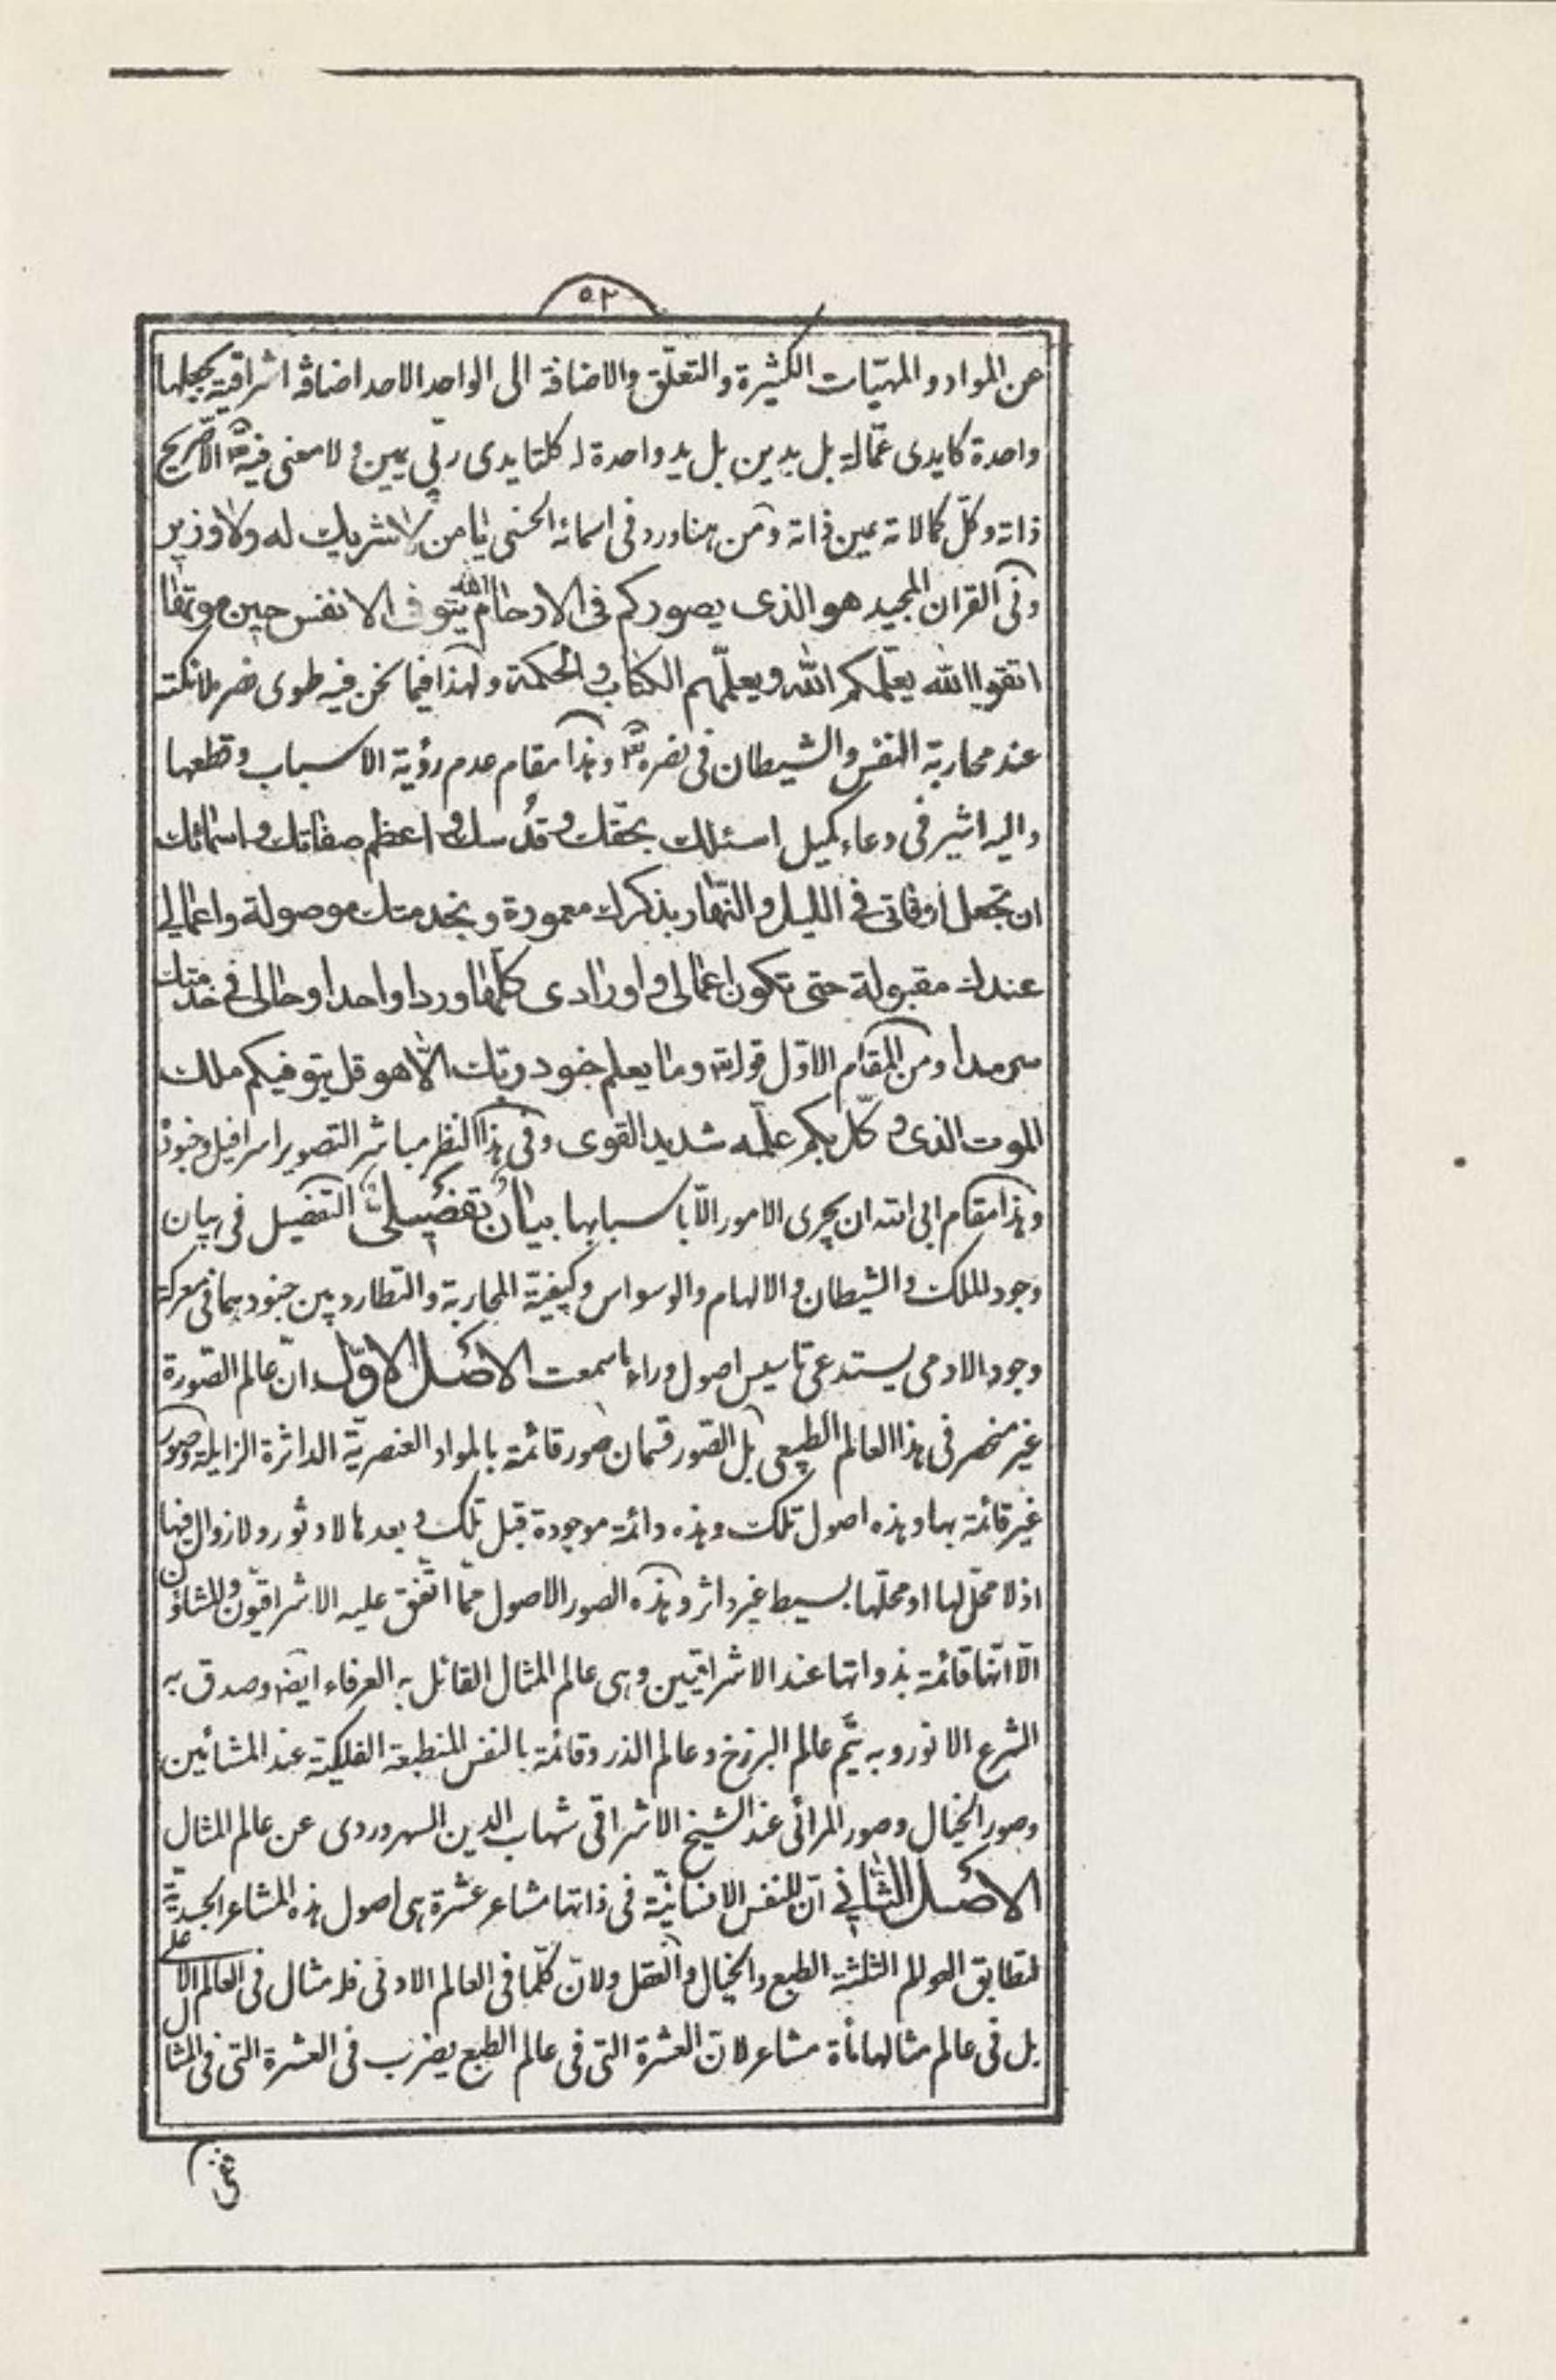 ٥٢
عن المواد و المهیّات الكثیرة و التعلّق والاضافة الى الواحد الاحد اضافه اشراقیة یجعلها
واحدة كایدى عمّالة بل یدین بل ید واحدة له كلتا یدى ربّى یمین و لا معنى فیه الّا صریح
ذاته و كلّ كمالاته عین ذاته و من هنا ورد فى اسمائه الحسنى یا من لا شریك له ولا وزیر
و فى القران المجید هو الذى یصوركم فى الارحام الله یتوفى الانفس حین موتها
اتقوا الله یعلّمكم الله و یعلّمهم الكتاب و الحكمة و لهذا فیما نحن فیه طوى ذكر ملائكته
عند محاربة النفس و الشیطان فى نصره و هذا مقام عدم رؤیة الاسباب و قطعها
و الیه اشیر فى دعاء كمیل اسئلك بحقّك و قدسك و اعظم صفاتك و اسمائك
ان تجعل اوقاتى فى اللیل و النّهار بذكرك معمورة و بخدمتك موصولة و اعمالى
عندك مقبولة حتى تكون اعمالى و اورادى كلّها وردا واحدا و حالى فى خدمتك
سرمدا و من المقام الاوّل قوله تعالى و ما یعلم جنود ربّك الّا هو قل یتوفیكم ملك
الموت الذى وكّل بكم علّمه شدید القوى و فى هذا النظر مباشر التصویر اسرافیل و جنوده
و هذا مقام ابى الله ان یجرى الامور الّا باسبابها بیان تفصیلى التفصیل فى بیان
وجود الملك و الشیطان و الالهام و الوسواس و كیفیّة المحاربة و التطارد بین جنودهما فى معركة
وجود الادمى یستدعى تاسیس اصول وراء ما سمعت الاصل الاوّل انّ عالم الصّورة
غیر منحصر فى هذا العالم الطبیعى بل الصّور قسمان صور قائمة بالمواد العنصریّة الداثرة الزایلة و صور
غیر قائمة بها و هذه اصول تلك و هذه دائمة موجودة قبل تلك و بعدها لا دثور و لا زوال فیها
اذ لا محلّ لها او محلّها بسیط غیر داثر و هذه الصور الاصول ممّا اتّفق علیه الاشراقیّون و المشاؤن
الّا انّها قائمة بذواتها عند الاشراقیّین و هى عالم المثال القائل به العرفاء ایضا و صدق به
الشرع الانور و به یتمّ عالم البرزخ و عالم الذر و قائمة بالنفس المنطبعة الفلكیّة عند المشائین
و صور الخیال و صور المرائى عند الشیخ الاشراقى شهاب الدین السهروردى عن عالم المثال
الاصل الثّانى انّ للنفس الانسانیّة فى ذاتها مشاعر عشرة هى اصول هذه المشاعر الجسدیّة
لتطابق العوالم الثلثة الطبع و الخیال و العقل و لانّ كلّما فى العالم الادنى فله مثال فى العالم الاعلى
بل فى عالم مثالها مأة مشاعر لانّ العشرة التى فى عالم الطبع یضرب فى العشرة التى فى المثال